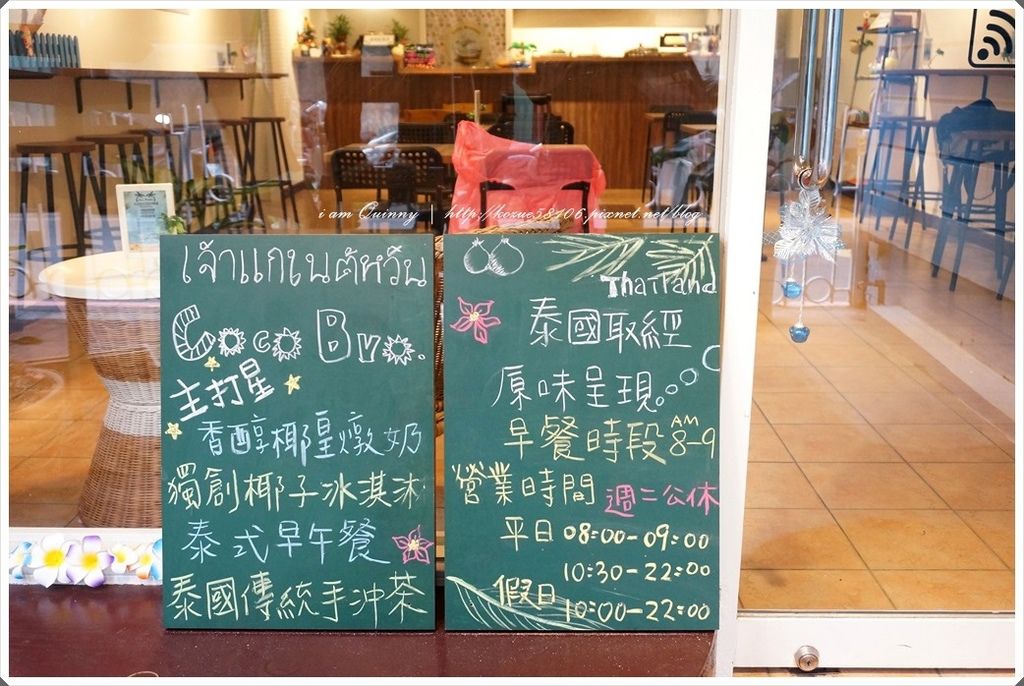 i am Quinny | http://kozue58106.pixnet.net/blog
เจ้าแกเนต์หวัน
Coco Bvo.
主打星
香醇椰皇燉奶
獨創椰子冰淇淋
泰式早午餐
泰國傳統手沖茶
Thailand
泰國取經
原味呈現。
早餐時段 AM 8-9
營業時間 週二公休
平日 08:00-09:00
10:30-22:00
假日 10:00-22:00